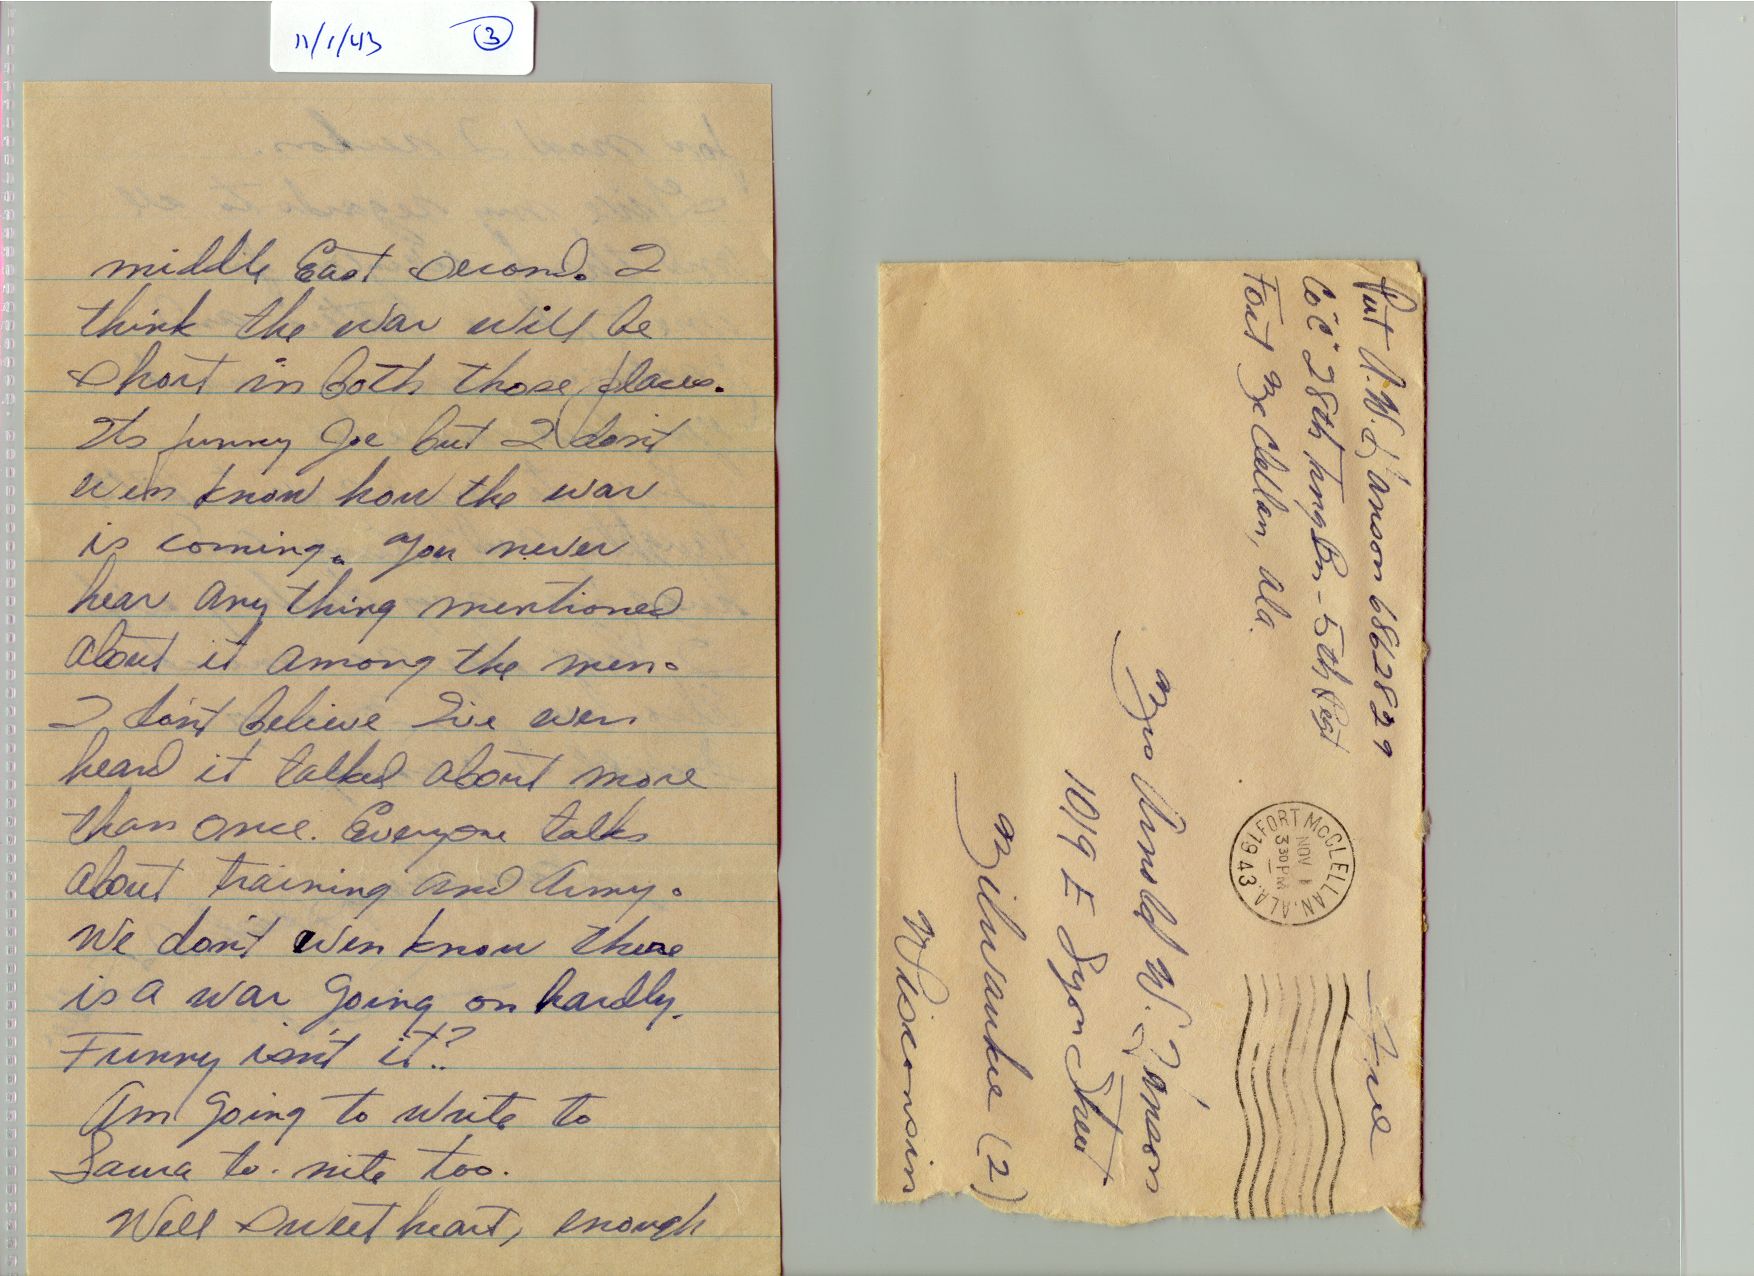 11/1/43 3
middle East second. I
think the war will be
short in both those places.
Its funny Joe but I don't
even know how the war
is coming. You never
hear any thing mentioned
about it among the men.
I don't believe I've even
heard it talked about more
than once. Everyone talks
about training and Army.
We don't even know there
is a war going on hardly.
Funny isn't it?
Am going to write to
Laura to-nite too.
Well sweetheart, enough
Pvt A.W. Janson 6862829
Co "C" 28th Trng Bn - 5th Regt
Fort McClellan, Ala.
Free
FORT McCLELLAN, ALA.
NOV 1
3 30 PM
1943
Mrs Arnold W. Janson
1019 E Lyon Street
Milwaukee (2)
Wisconsin